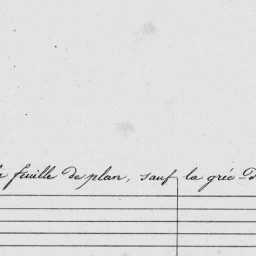 feuille de plan, sauf la gré-